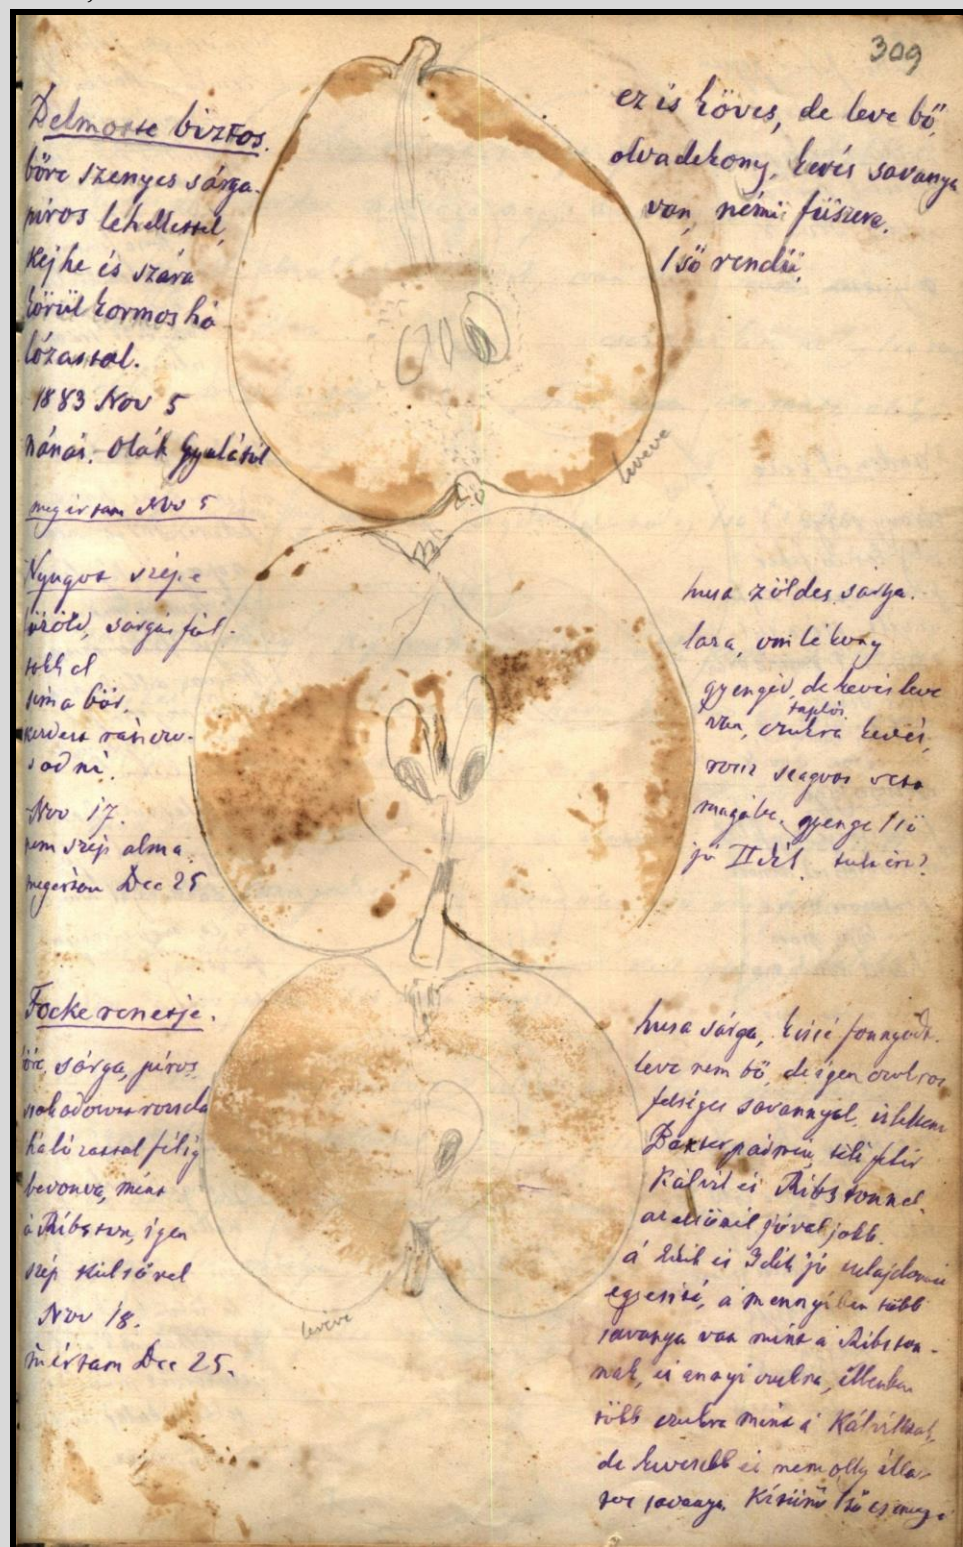 309
Delmotte biztos.
bőre szenyes sárga.
piros lehellettel,
Kejhe és szára
körül kormos há
lózattal.
1883 Nov 5
nánás. Oláh Gyulától
megirtam Nov 5
ez is köves, de leve bő,
olvadékony, kevés savanya
van, némü füszere.
1ső rendü
levéve
Nyugot szépe
sárgás
sima bőr,
Nov 17.
nem szép alma
megirtam Dec 25
husa zöldes sárga.
laza, omlékony
gyengéd, de kevés leve
van, czukra kevés,
rosz szagvas
magába, gyenge 1ső
jó II
Focke renetje.
sárga, piros
hálózattal félig
bevonva, mint
a Ribston, igen
szép külsővel
Nov 18.
Dec 25.
levéve
husa sárga, kissé fonnyadt.
leve nem bő, de igen czukros
felséges savannyal,
téli fehér
Kálvil és Ribstonnel.
jóval jobb.
a és 3dik jó tulajdonait
egyesiti, a mennyiben több
savanya van mint a Ribston-
nak, és annyi czukra, ellenben
több czukra mint a Kálvilnak,
de kevesebb és nem olly illa
savanya. Kitünő 1ső